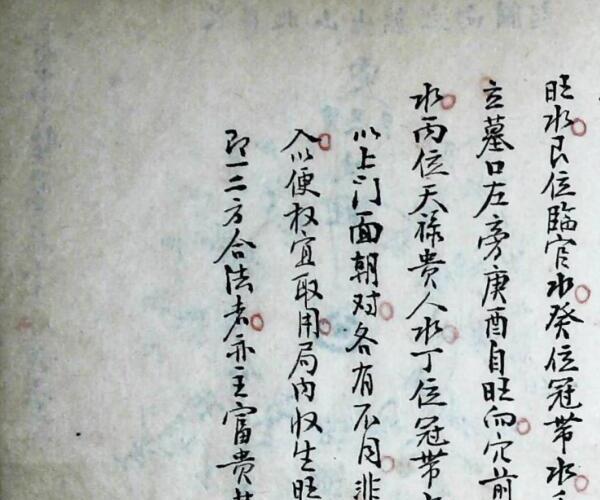 旺水艮位臨官水癸位冠带水
立墓口左旁庚酉自旺向穴前
水丙位天禄贵人水丁位冠带
以上门面朝对各有不同非
入以便权宜取用局内收生旺
即一二方合法者亦主富贵